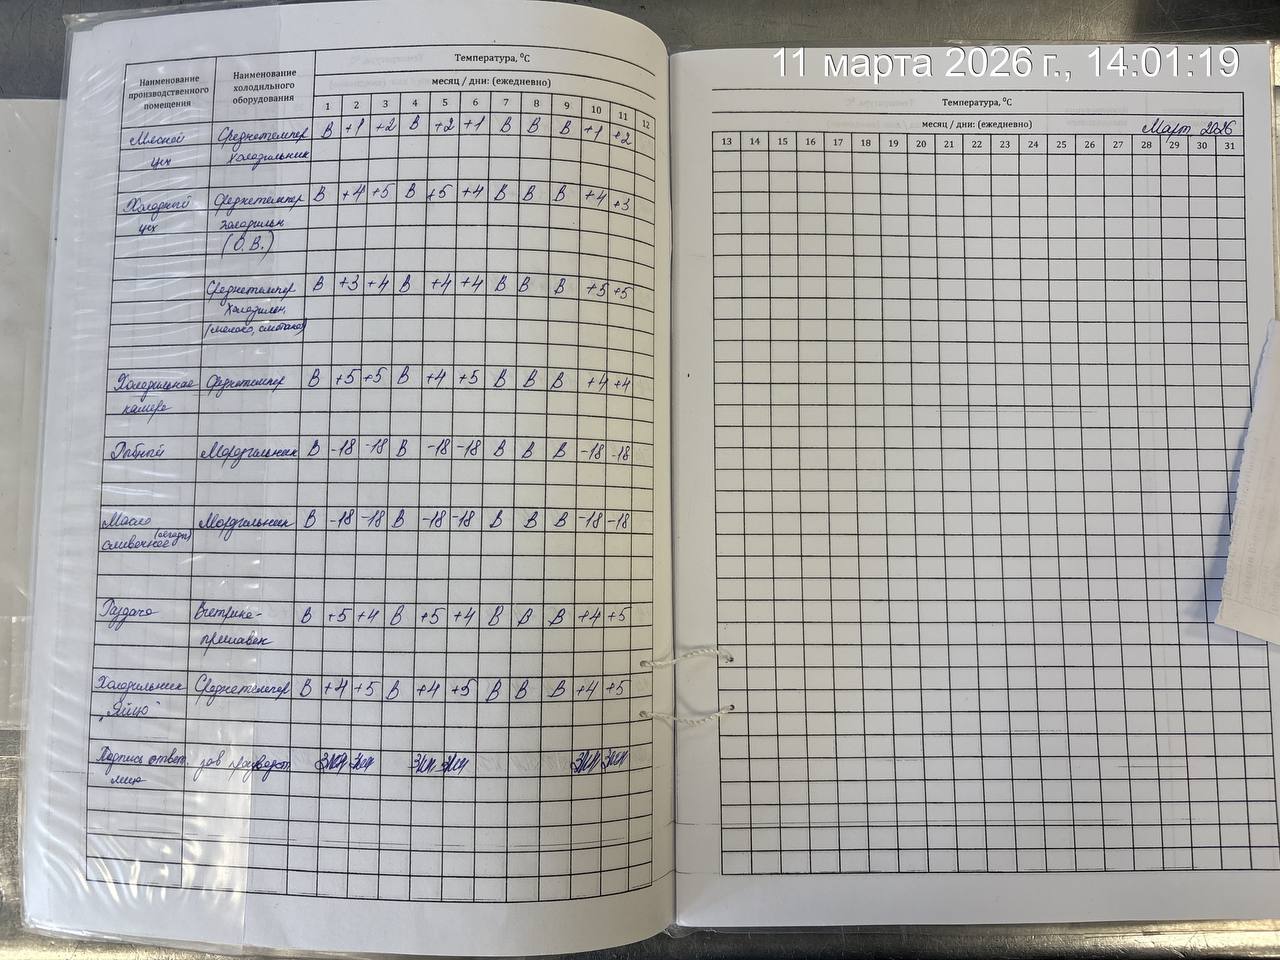 11 марта 2026 г., 14:01:19
Наименование производственного помещения
Наименование холодильного оборудования
Температура, ⁰С
месяц / дни: (ежедневно)
1 2 3 4 5 6 7 8 9 10 11 12
Мясной Среднетемпер В +1 +2 В +2 +1 В В В +1 +2
цех холодильник
Холодный Среднетемпер В +4 +5 В +5 +4 В В В +4 +3
цех холодильн
(О.В.)
Среднетемпер В +3 +4 В +4 +4 В В В +5 +5
Холодильн.
(молоко, сметана)
Холодильная Среднетемпер В +5 +5 В +4 +5 В В В +4 +4
камера
Рыбный Морозильник В -18 -18 В -18 -18 В В В -18 -18
Масло Морозильник В -18 -18 В -18 -18 В В В -18 -18
сливочное
Раздача Витрина- В +5 +4 В +5 +4 В В В +4 +5
прилавок
Холодильник Среднетемпер В +4 +5 В +4 +5 В В В +4 +5
"Яйцо"
Подпись ответ. зав производст
лица
Температура, ⁰С
месяц / дни: (ежедневно) Март 2026
13 14 15 16 17 18 19 20 21 22 23 24 25 26 27 28 29 30 31